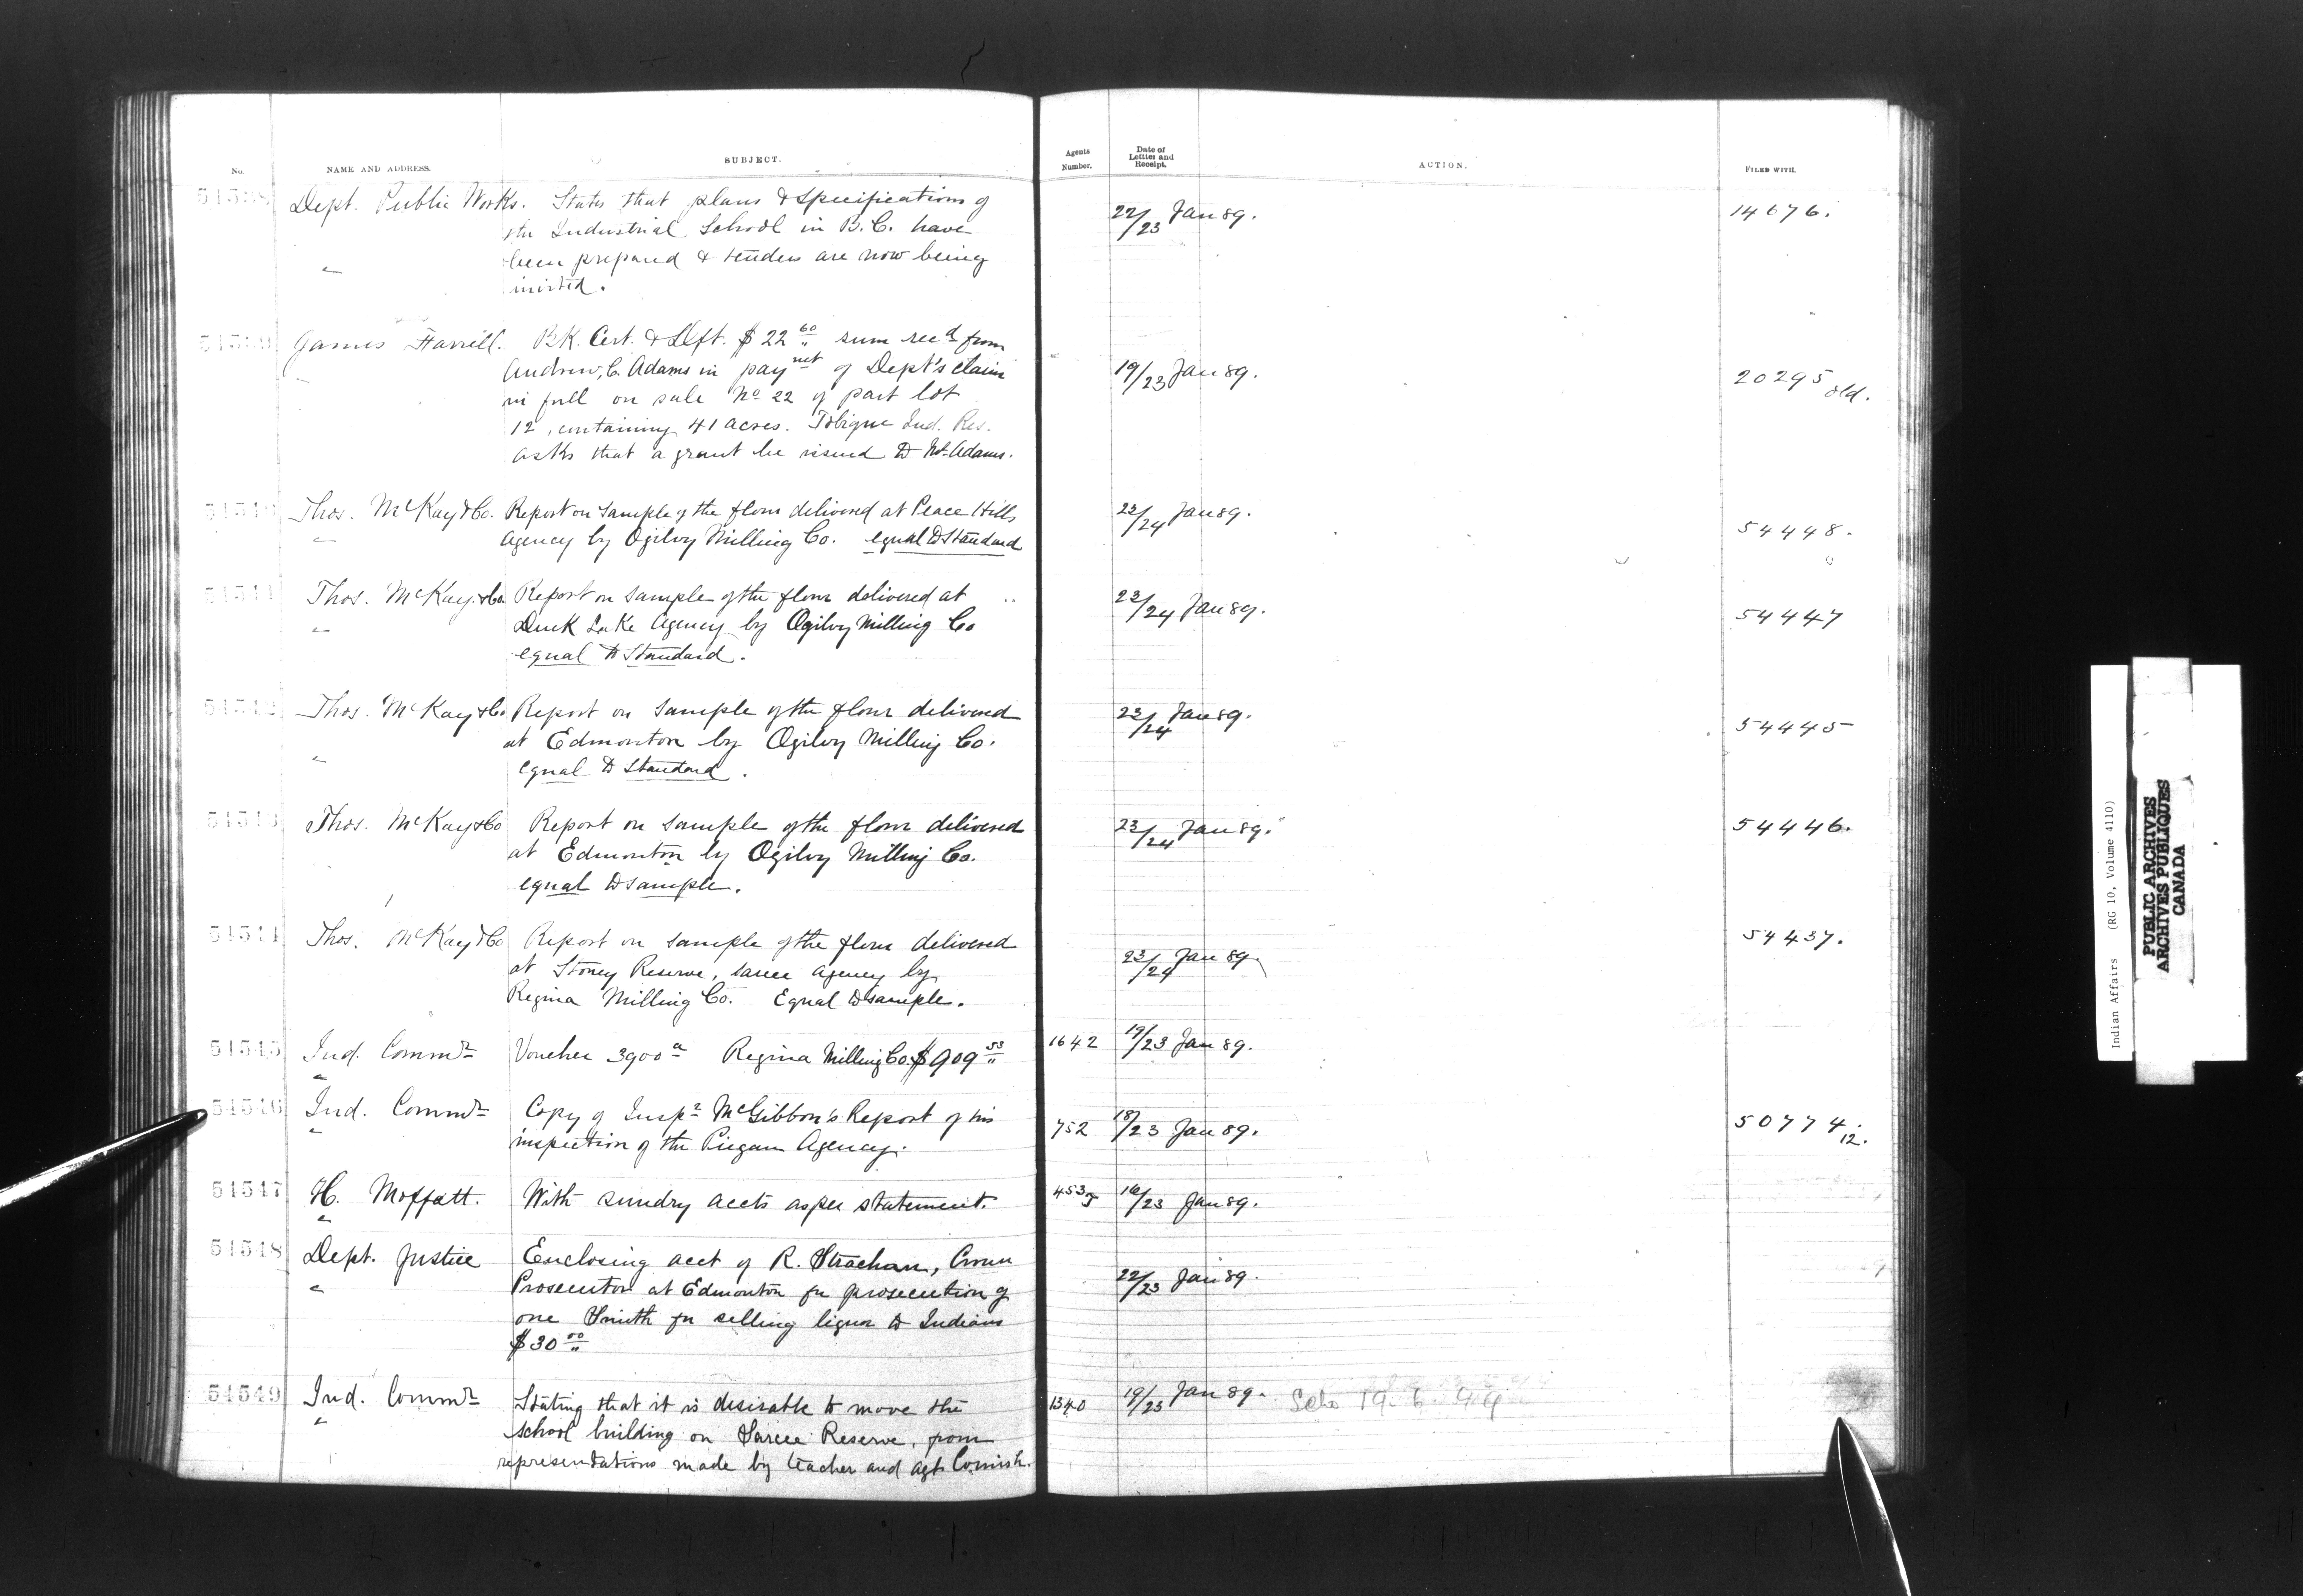 No. NAME AND ADDRESS. SUBJECT. Agents Number. Date of Letter and Receipt. ACTION. FILED WITH.
54538 Dept. Public Works. States that plans & specifications of 22/23 Jan 89. 14676.
the Industrial School in B.C. have
been prepared & tenders are now being
invited.
54539 James Farrell. BK. Cert. & Dft. $22 60 sum recd from
Andrew C. Adams in paymnt of Dept's claim 19/23 Jan 89. 20295 old.
in full on sale No 22 of part lot
12, containing 41 acres. Tobique Ind. Res.
asks that a grant be issued to Mr. Adams.
54540 Thos. McKay & Co. Report on sample of the flour delivered at Peace Hills 23/24 Jan 89. 54448.
Agency by Ogilvy Milling Co. equal to standard
54541 Thos. McKay & Co. Report on sample of the flour delivered at 23/24 Jan 89. 54447
Duck Lake Agency by Ogilvy Milling Co
equal to Standard.
54542 Thos. McKay & Co. Report on sample of the flour delivered 23/24 Jan 89. 54445
at Edmonton by Ogilvy Milling Co.
equal to standard.
54543 Thos. McKay & Co Report on sample of the flour delivered 23/24 Jan 89. 54446.
at Edmonton by Ogilvy Milling Co.
equal to sample.
54544 Thos. McKay & Co Report on sample of the flour delivered 23/24 Jan 89. 54437.
at Stoney Reserve, Sarcee Agency by
Regina Milling Co. Equal to sample.
54545 Ind. Commr Voucher 3900 a Regina Milling Co. $909 53 1642 19/23 Jan 89.
54546 Ind. Commr Copy of Inspr McGibbon's Report of his 752 18/23 Jan 89. 50774 12.
inspection of the Piegan Agency.
54547 H. Moffatt. With sundry accts as per statement. 453 16/23 Jan 89.
54548 Dept. Justice Enclosing acct of R. Strachan, Crown 22/23 Jan 89.
Prosecutor at Edmonton for prosecution of
one Smith for selling liquor to Indians
$30 00
54549 Ind. Commr Stating that it is desirable to move the 1340 19/23 Jan 89.
school building on Sarcee Reserve, from
representations made by teacher and agt Cornish.
Indian Affairs (RG 10, Volume 4110)
PUBLIC ARCHIVES
ARCHIVES PUBLIQUES
CANADA